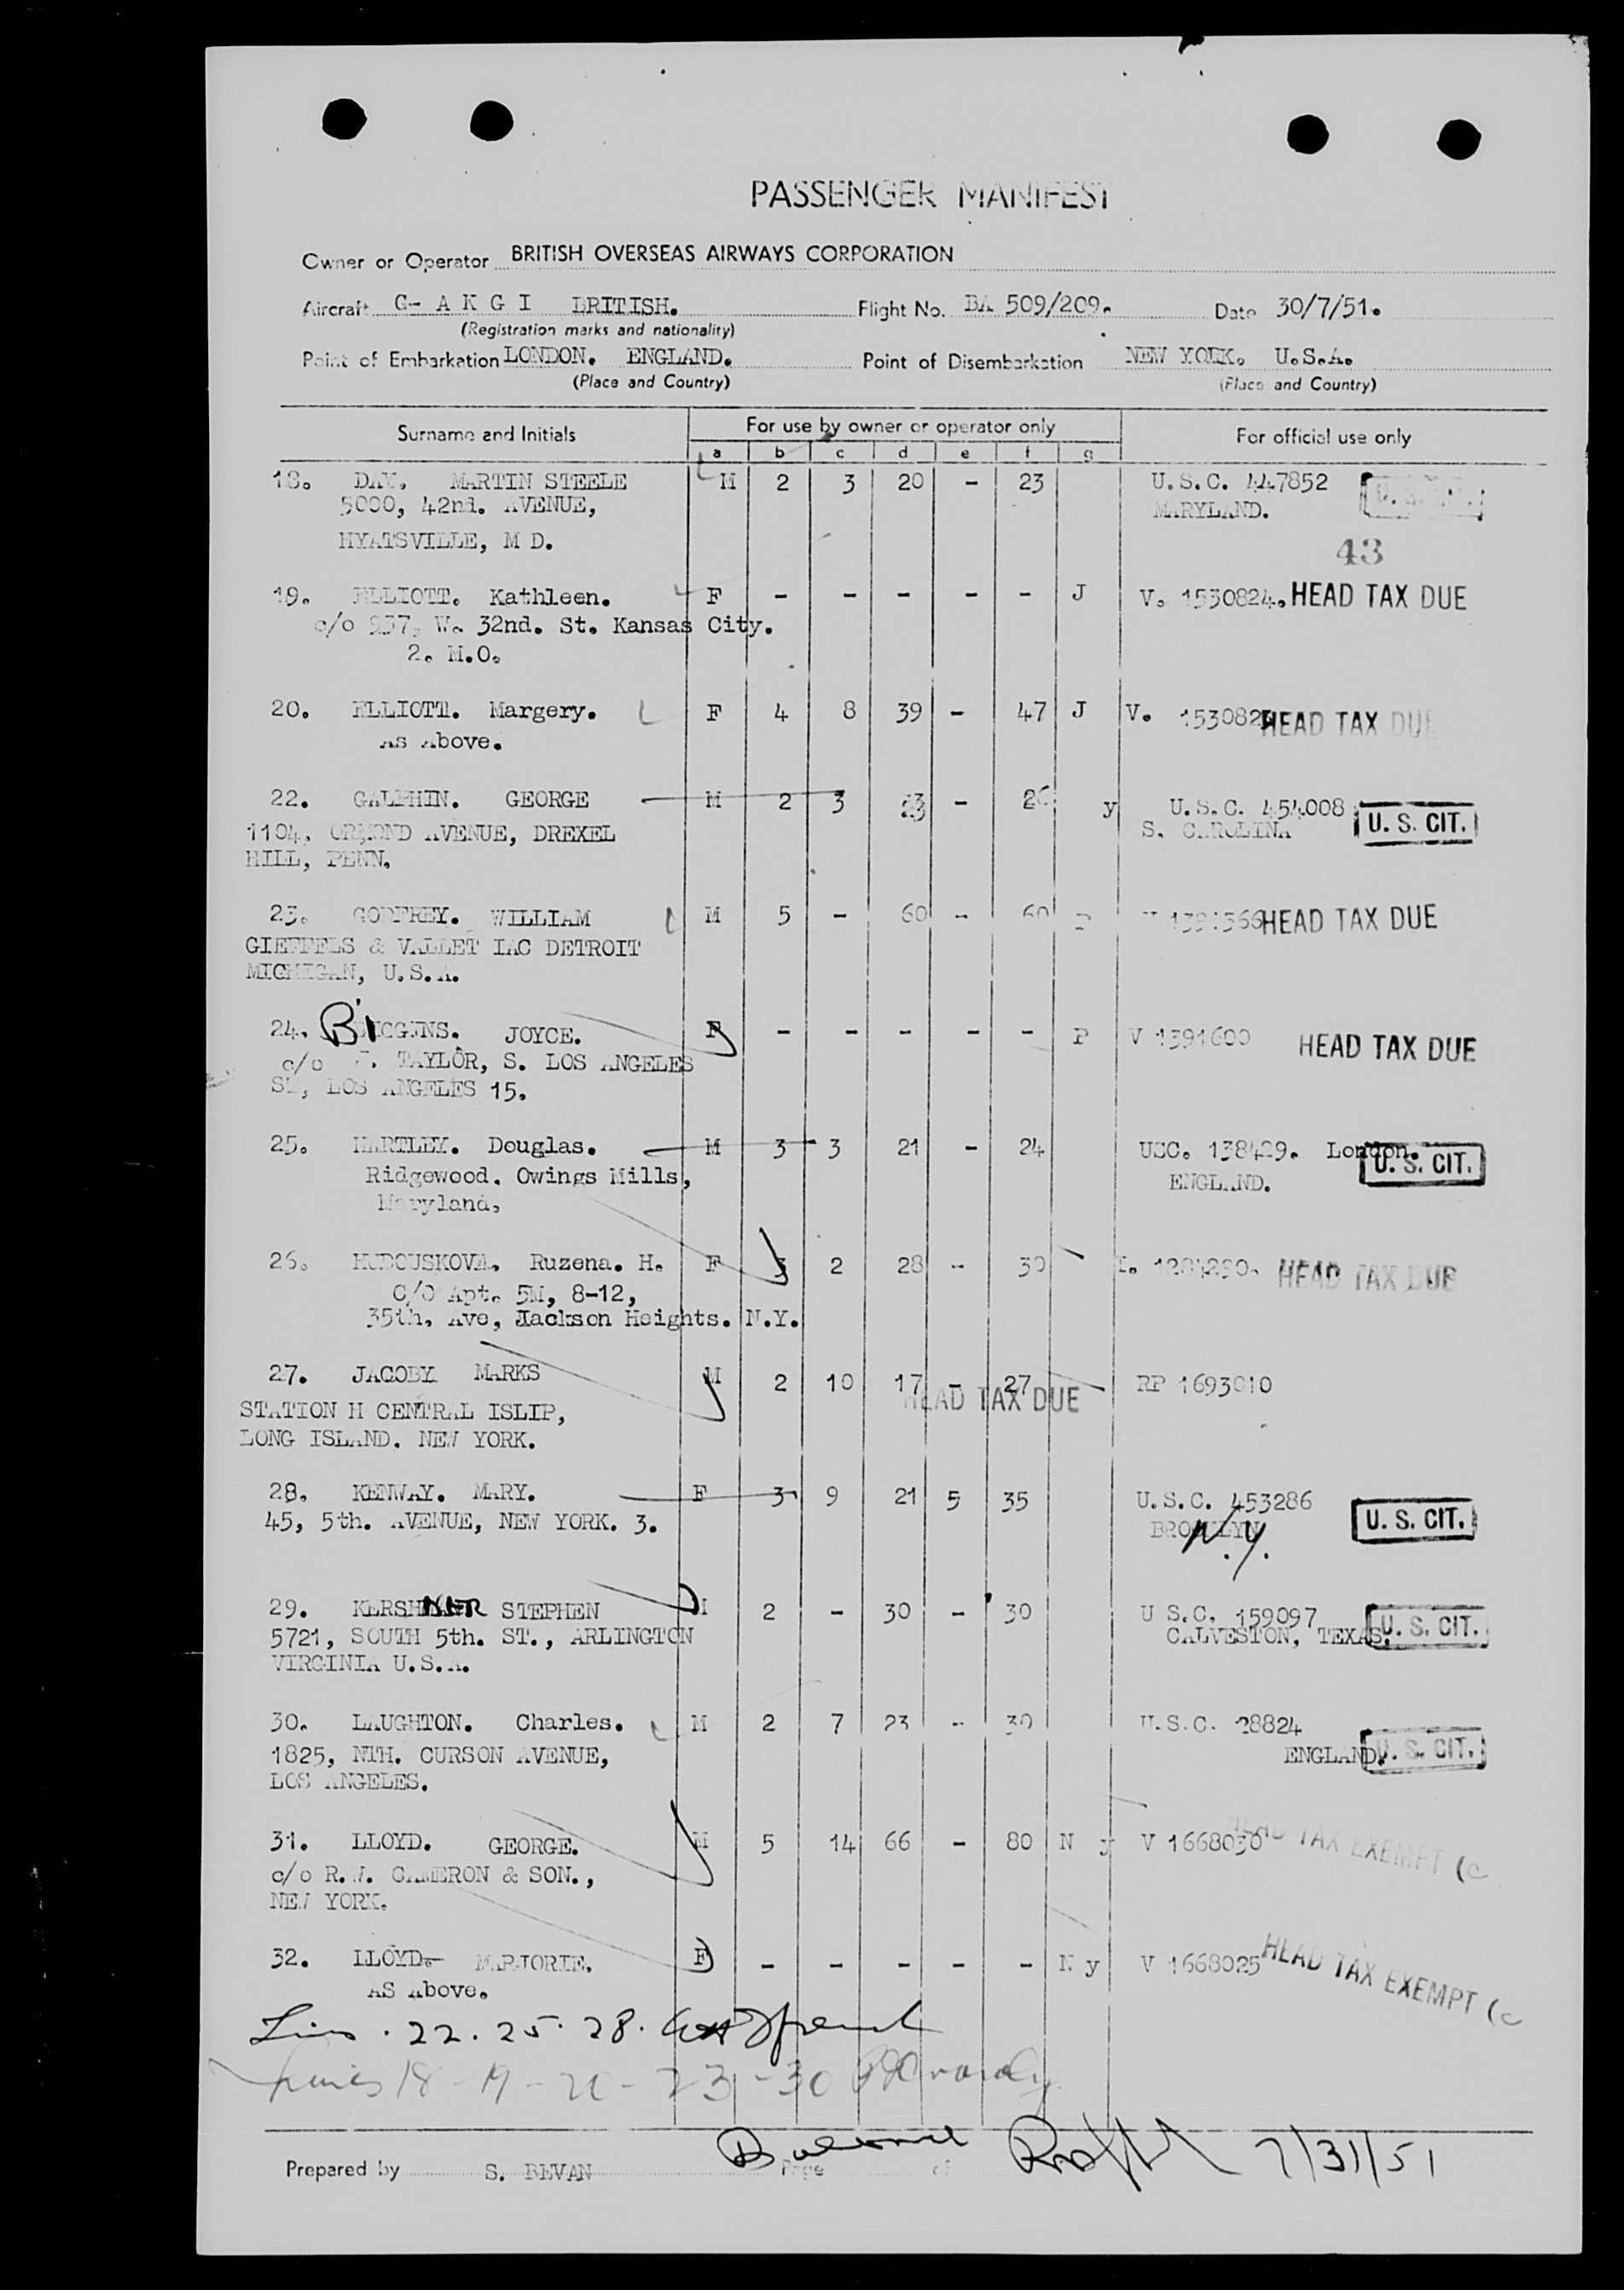 PASSENGER MANIFEST
Owner or Operator BRITISH OVERSEAS AIRWAYS CORPORATION
Aircraft G- A K G I BRITISH. Flight No. BA 509/209. Date 30/7/51.
(Registration marks and nationality)
Point of Embarkation LONDON. ENGLAND. Point of Disembarkation NEW YORK. U.S.A.
(Place and Country) (Place and Country)
Surname and Initials For use by owner or operator only For official use only
a b c d e f g
18. DAY. MARTIN STEELE M 2 3 20 - 23 U.S.C. 447852 U. S. CIT.
5000, 42nd. AVENUE, MARYLAND.
HYATSVILLE, M D. 43
19. ELLIOTT. Kathleen. F - - - - - J V. 1530824. HEAD TAX DUE
c/o 937, W. 32nd. St. Kansas City.
2. M.O.
20. ELLIOTT. Margery. F 4 8 39 - 47 J V. HEAD TAX DUE
As Above.
22. GALPHIN. GEORGE M 2 3 23 - 26 y U.S.C. 454008 U. S. CIT.
1104, ORMOND AVENUE, DREXEL S. CAROLINA
HILL, PENN.
23. GODFREY. WILLIAM M 5 - 60 - 60 P V 1391366 HEAD TAX DUE
GIEFFELS & VALLET INC DETROIT
MICHIGAN, U.S.A.
24. JOYCE. F - - - - - P V 1391600 HEAD TAX DUE
c/o TAYLOR, S. LOS ANGELES
ST, LOS ANGELES 15.
25. HARTLEY. Douglas. M 3 3 21 - 24 USC. 138429. London. U. S. CIT.
Ridgewood. Owings Mills, ENGLAND.
Maryland,
26. HUBOUSKOVA. Ruzena. H. F 3 2 28 - 30 I. 1284290. HEAD TAX DUE
C/O Apt. 5M, 8-12,
35th, Ave, Jackson Heights. N.Y.
27. JACOBY MARKS M 2 10 17 - 27 RP 1693010
HEAD TAX DUE
STATION H CENTRAL ISLIP,
LONG ISLAND. NEW YORK.
28. KENWAY. MARY. F 3 9 21 5 35 U.S.C. 453286 U. S. CIT.
45, 5th. AVENUE, NEW YORK. 3. BROOKLYN N.Y.
29. KERSHNER STEPHEN M 2 - 30 - 30 U S.C. 159097 U. S. CIT.
5721, SOUTH 5th. ST., ARLINGTON GALVESTON, TEXAS.
VIRGINIA U.S.A.
30. LAUGHTON. Charles. M 2 7 23 - 30 U.S.C. 28824
1825, NTH. CURSON AVENUE, ENGLAND. U. S. CIT.
LOS ANGELES.
31. LLOYD. GEORGE. M 5 14 66 - 80 N y V 1668030 HEAD TAX EXEMPT (c
c/o R.W. CAMERON & SON.,
NEW YORK.
32. LLOYD. MARJORIE. F - - - - - N y V 1668025 HEAD TAX EXEMPT (c
AS Above.
Lines . 22 . 25 . 28 .
Lines 18 - 19 - 20 - 23 - 30
Balance 7/31/51
Prepared by S. BEVAN Page of